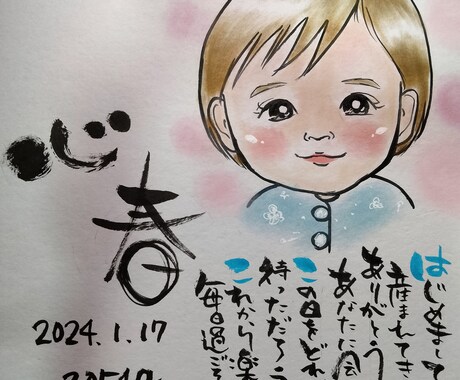 心春
2024.1.17
はじめまして
産まれてき
ありがとう
あなたに会
この日をどれ
待っただろう
これから楽
毎日過ご